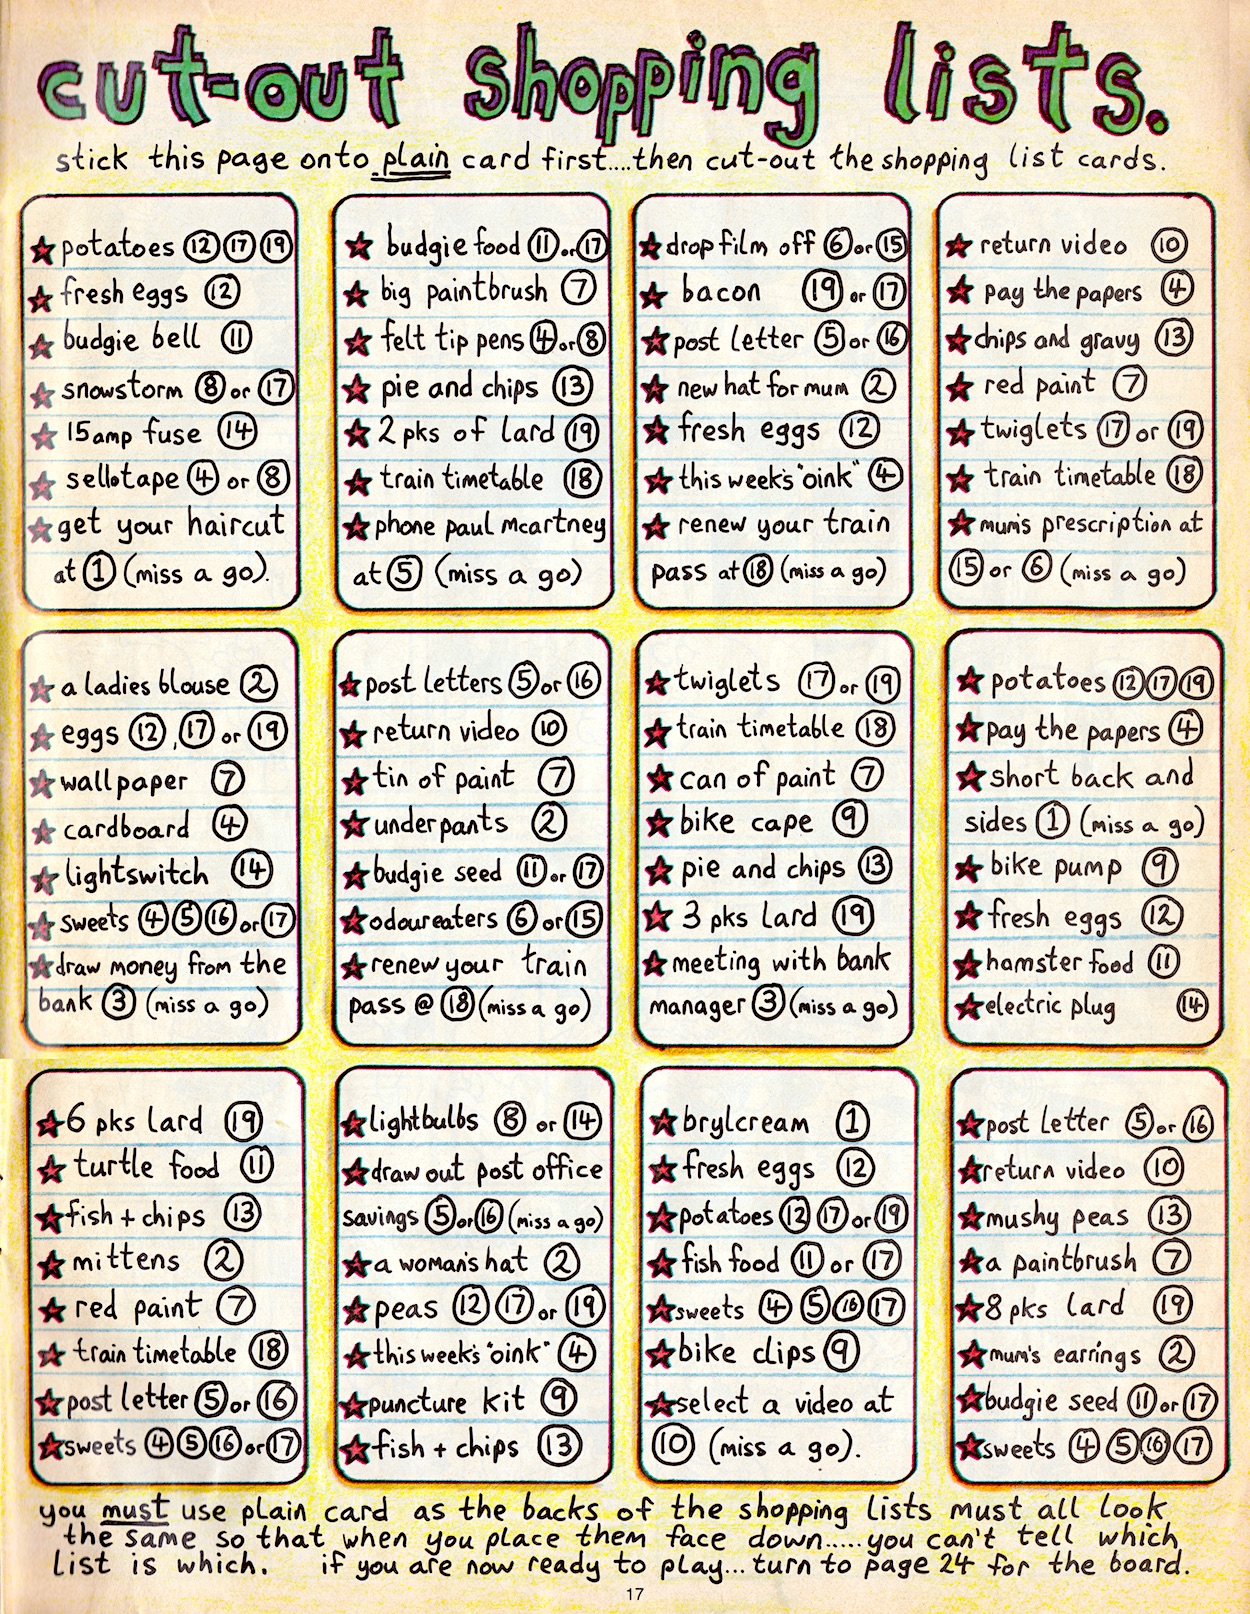 cut-out shopping lists.
stick this page onto plain card first....then cut-out the shopping list cards.
potatoes 12 17 19
fresh eggs 12
budgie bell 11
snowstorm 8 or 17
15amp fuse 14
sellotape 4 or 8
get your haircut
at 1 (miss a go).
budgie food 11 or 17
big paintbrush 7
felt tip pens 4 or 8
pie and chips 13
2 pks of lard 19
train timetable 18
phone paul mcartney
at 5 (miss a go)
drop film off 6 or 15
bacon 19 or 17
post letter 5 or 16
new hat for mum 2
fresh eggs 12
this week's "oink" 4
renew your train
pass at 18 (miss a go)
return video 10
pay the papers 4
chips and gravy 13
red paint 7
twiglets 17 or 19
train timetable 18
mum's prescription at
15 or 6 (miss a go)
a ladies blouse 2
eggs 12, 17 or 19
wallpaper 7
cardboard 4
lightswitch 14
sweets 4 5 16 or 17
draw money from the
bank 3 (miss a go)
post letters 5 or 16
return video 10
tin of paint 7
underpants 2
budgie seed 11 or 17
odoureaters 6 or 15
renew your train
pass @ 18 (miss a go)
twiglets 17 or 19
train timetable 18
can of paint 7
bike cape 9
pie and chips 13
3 pks lard 19
meeting with bank
manager 3 (miss a go)
potatoes 12 17 19
pay the papers 4
short back and
sides 1 (miss a go)
bike pump 9
fresh eggs 12
hamster food 11
electric plug 14
6 pks lard 19
turtle food 11
fish + chips 13
mittens 2
red paint 7
train timetable 18
post letter 5 or 16
sweets 4 5 16 or 17
lightbulbs 8 or 14
draw out post office
savings 5 or 16 (miss a go)
a woman's hat 2
peas 12 17 or 19
this week's "oink" 4
puncture kit 9
fish + chips 13
brylcream 1
fresh eggs 12
potatoes 12 17 or 19
fish food 11 or 17
sweets 4 5 16 17
bike clips 9
select a video at
10 (miss a go).
post letter 5 or 16
return video 10
mushy peas 13
a paintbrush 7
8 pks lard 19
mum's earrings 2
budgie seed 11 or 17
sweets 4 5 16 17
you must use plain card as the backs of the shopping lists must all look
the same so that when you place them face down.....you can't tell which
list is which. if you are now ready to play...turn to page 24 for the board.
17